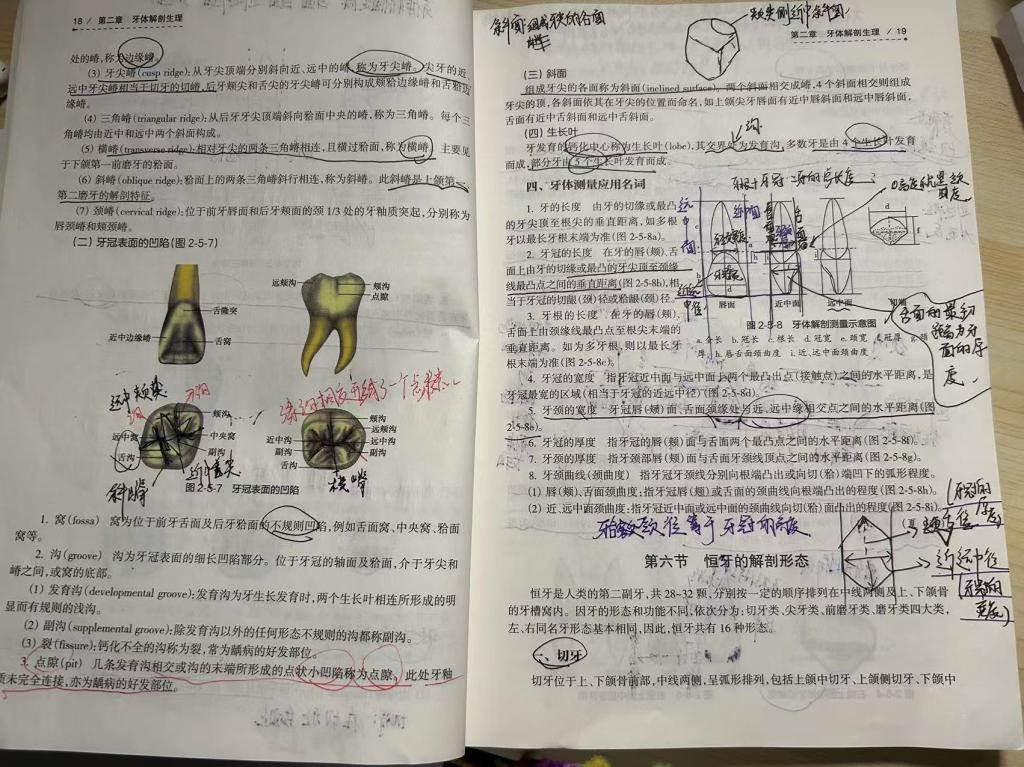 18 / 第二章 牙体解剖生理
处的嵴，称为边缘嵴。
(3) 牙尖嵴(cusp ridge):从牙尖顶端分别斜向近、远中的嵴，称为牙尖嵴。尖牙的近、
远中牙尖嵴相当于切牙的切嵴，后牙颊尖和舌尖的牙尖嵴可分别构成颊𬌗边缘嵴和舌𬌗边
缘嵴。
(4) 三角嵴(triangular ridge):从后牙牙尖顶端斜向𬌗面中央的嵴，称为三角嵴。每个三
角嵴均由近中和远中两个斜面构成。
(5) 横嵴(transverse ridge):相对牙尖的两条三角嵴相连，且横过𬌗面，称为横嵴。主要见
于下颌第一前磨牙的𬌗面。
(6) 斜嵴(oblique ridge):𬌗面上的两条三角嵴斜行相连，称为斜嵴。此斜嵴是上颌第一、
第二磨牙的解剖特征。
(7) 颈嵴(cervical ridge):位于前牙唇面和后牙颊面的颈 1/3 处的牙釉质突起，分别称为
唇颈嵴和颊颈嵴。
(二) 牙冠表面的凹陷(图 2-5-7)
舌隆突
近中边缘嵴
舌窝
远颊沟
颊沟
点隙
颊沟
远中窝
中央窝
副沟
舌沟
斜嵴
颊沟
远颊沟
近中沟
远中沟
副沟
副沟
舌沟
横嵴
图 2-5-7 牙冠表面的凹陷
1. 窝(fossa) 窝为位于前牙舌面及后牙𬌗面的不规则凹陷，例如舌面窝、中央窝、𬌗面
窝等。
2. 沟(groove) 沟为牙冠表面的细长凹陷部分。位于牙冠的轴面及𬌗面，介于牙尖和
嵴之间，或窝的底部。
(1) 发育沟(developmental groove):发育沟为牙生长发育时，两个生长叶相连所形成的明
显而有规则的浅沟。
(2) 副沟(supplemental groove):除发育沟以外的任何形态不规则的沟都称副沟。
(3) 裂(fissure):钙化不全的沟称为裂，常为龋病的好发部位。
3. 点隙(pit) 几条发育沟相交或沟的末端所形成的点状小凹陷称为点隙，此处牙釉
质未完全连接，亦为龋病的好发部位。
第二章 牙体解剖生理 / 19
(三) 斜面
组成牙尖的各面称为斜面(inclined surface)。两个斜面相交成嵴，4 个斜面相交则组成
牙尖的顶，各斜面依其在牙尖的位置而命名，如上颌尖牙唇面有近中唇斜面和远中唇斜面，
舌面有近中舌斜面和远中舌斜面。
(四) 生长叶
牙发育的钙化中心称为生长叶(lobe)，其交界处为发育沟，多数牙是由 4 个生长叶发育
而成，部分牙由 5 个生长叶发育而成。
四、牙体测量应用名词
1. 牙的长度 由牙的切缘或最凸
的牙尖顶至根尖的垂直距离，如多根
牙以最长牙根末端为准(图 2-5-8a)。
2. 牙冠的长度 在牙的唇(颊)、舌
面上由牙的切缘或最凸的牙尖顶至颈缘
线最凸点之间的垂直距离(图 2-5-8b)，相
当于牙冠的切龈(颈)径或𬌗龈(颈)径。
3. 牙根的长度 在牙的唇(颊)、
舌面上由颈缘线最凸点至根尖末端的
垂直距离。如为多牙根，则以最长牙
根末端为准(图 2-5-8c)。
唇面
近中面
远中面
切端
图 2-5-8 牙体解剖测量示意图
a. 全长 b. 冠长 c. 根长 d. 冠宽 e. 颈宽 f. 冠厚 g. 颈
厚 h. 唇舌面颈曲度 i. 近、远中面颈曲度
4. 牙冠的宽度 指牙冠近中面与远中面上两个最凸出点(接触点)之间的水平距离，是
牙冠最宽的区域(相当于牙冠的近远中径)(图 2-5-8d)。
5. 牙颈的宽度 牙冠唇(颊)面、舌面颈缘处与近、远中缘相交点之间的水平距离(图
2-5-8e)。
6. 牙冠的厚度 指牙冠的唇(颊)面与舌面两个最凸点之间的水平距离(图 2-5-8f)。
7. 牙颈的厚度 指牙颈部唇(颊)面与舌面牙颈线顶点之间的水平距离(图 2-5-8g)。
8. 牙颈曲线(颈曲度) 指牙冠牙颈线分别向根端凸出或向切(𬌗)端凹下的弧形程度。
(1) 唇(颊)、舌面颈曲度:指牙冠唇(颊)或舌面的颈曲线向根端凸出的程度(图 2-5-8h)。
(2) 近、远中面颈曲度:指牙冠近中面或远中面的颈曲线向切(𬌗)面凸出的程度(图 2-5-8i)。
第六节 恒牙的解剖形态
恒牙是人类的第二副牙，共 28~32 颗，分别按一定的顺序排列在中线两侧及上、下颌骨
的牙槽窝内。因牙的形态和功能不同，依次分为:切牙类、尖牙类、前磨牙类、磨牙类四大类，
左、右同名牙形态基本相同，因此，恒牙共有 16 种形态。
一、切牙
切牙位于上、下颌骨前部，中线两侧，呈弧形排列，包括上颌中切牙、上颌侧切牙、下颌中